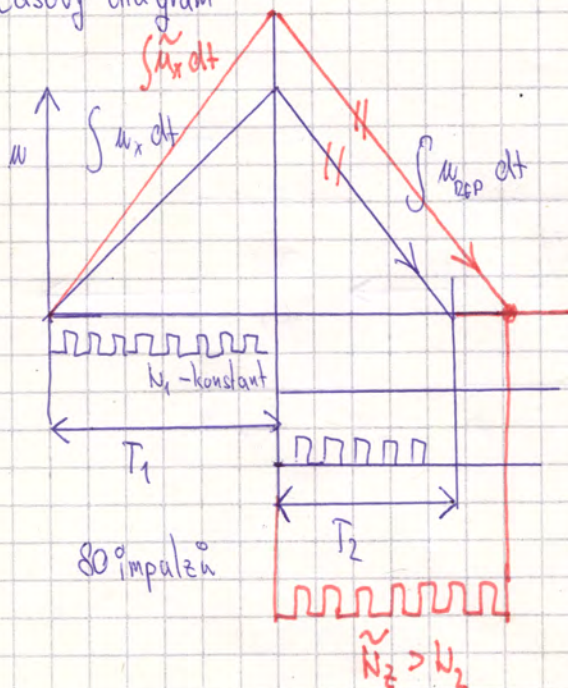 časový diagram
∫ũₓ dt
u
∫ uₓ dt
∫ u_REF dt
N₁ - konstant
T₁
T₂
80 impulzů
Ñ₂ > N₂